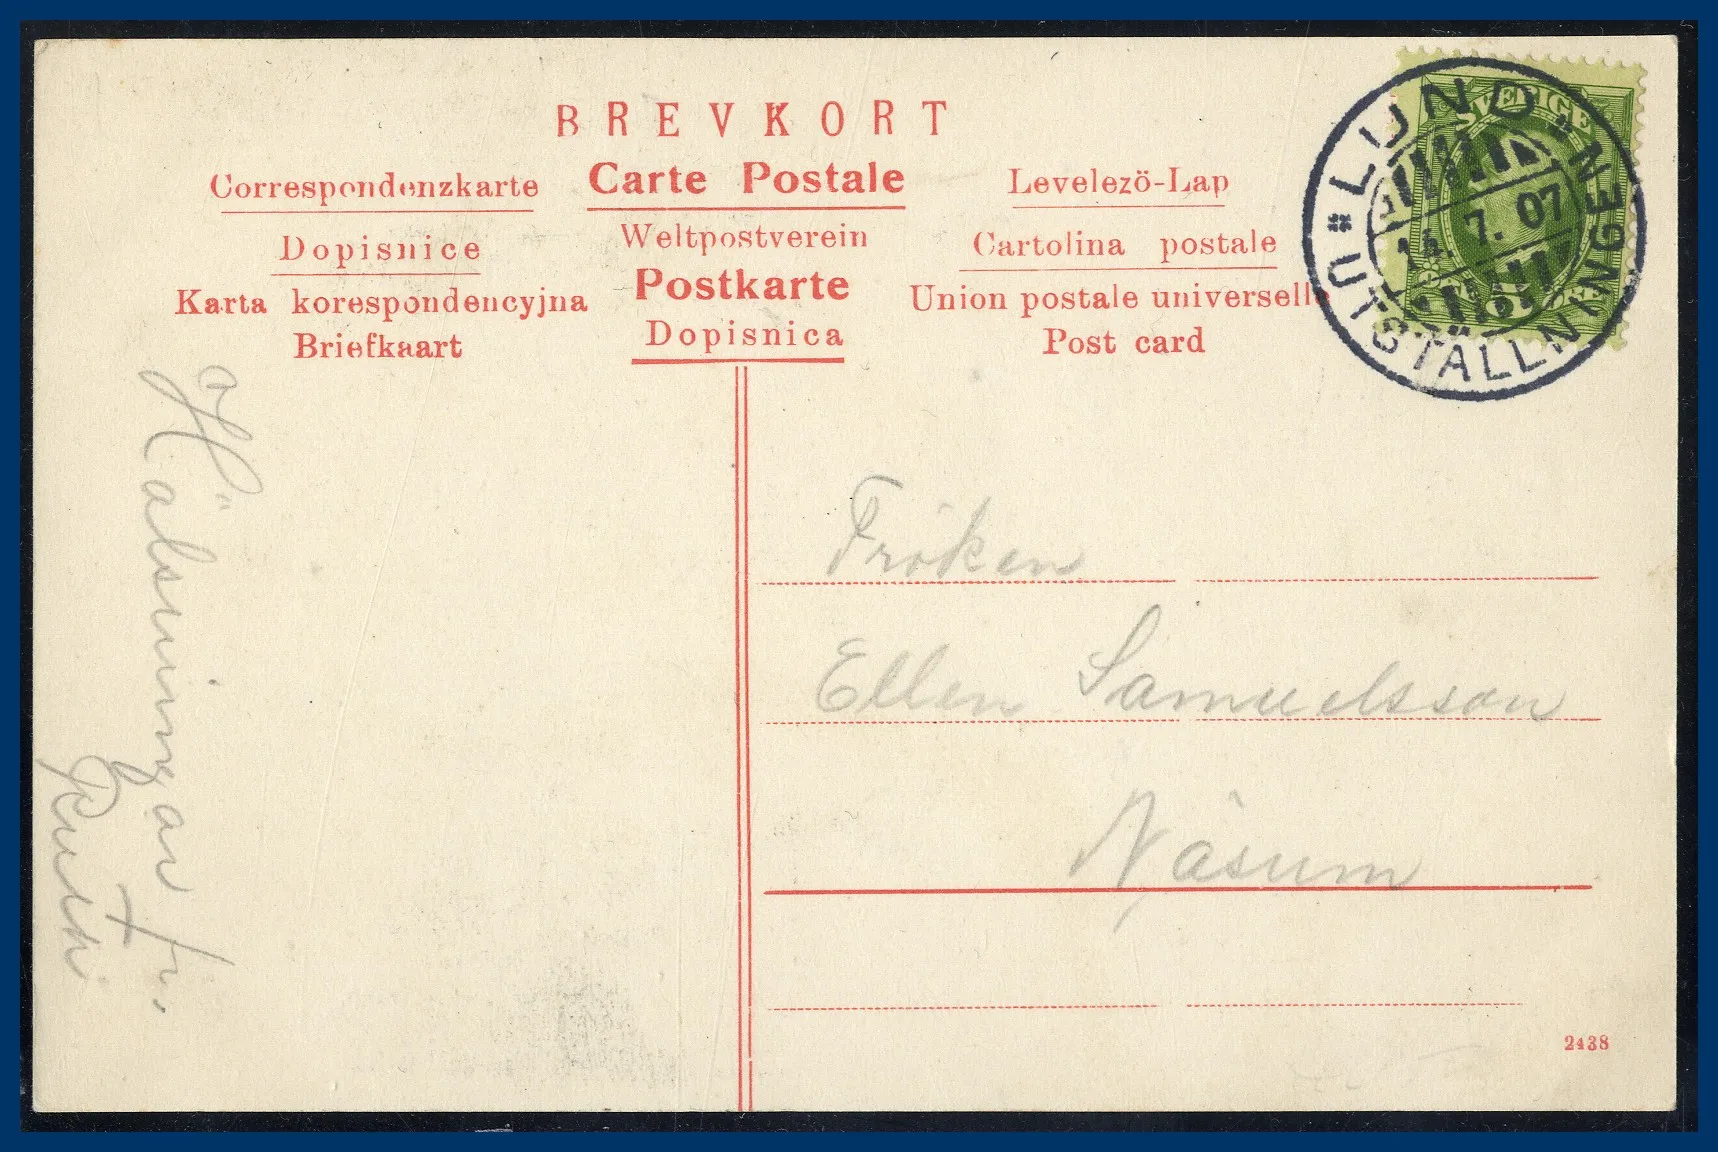 BREVKORT
Correspondenzkarte
Carte Postale
Levelezö-Lap
Dopisnice
Weltpostverein
Cartolina postale
Karta korespondencyjna
Postkarte
Union postale universelle
Briefkaart
Dopisnica
Post card
SVERIGE
LUND
7. 07
UTSTÄLLNINGEN
Hälsningar fr.
Ruth
Fröken
Ellen Samuelsson
Näsum
2438